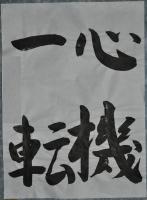 心機
一転